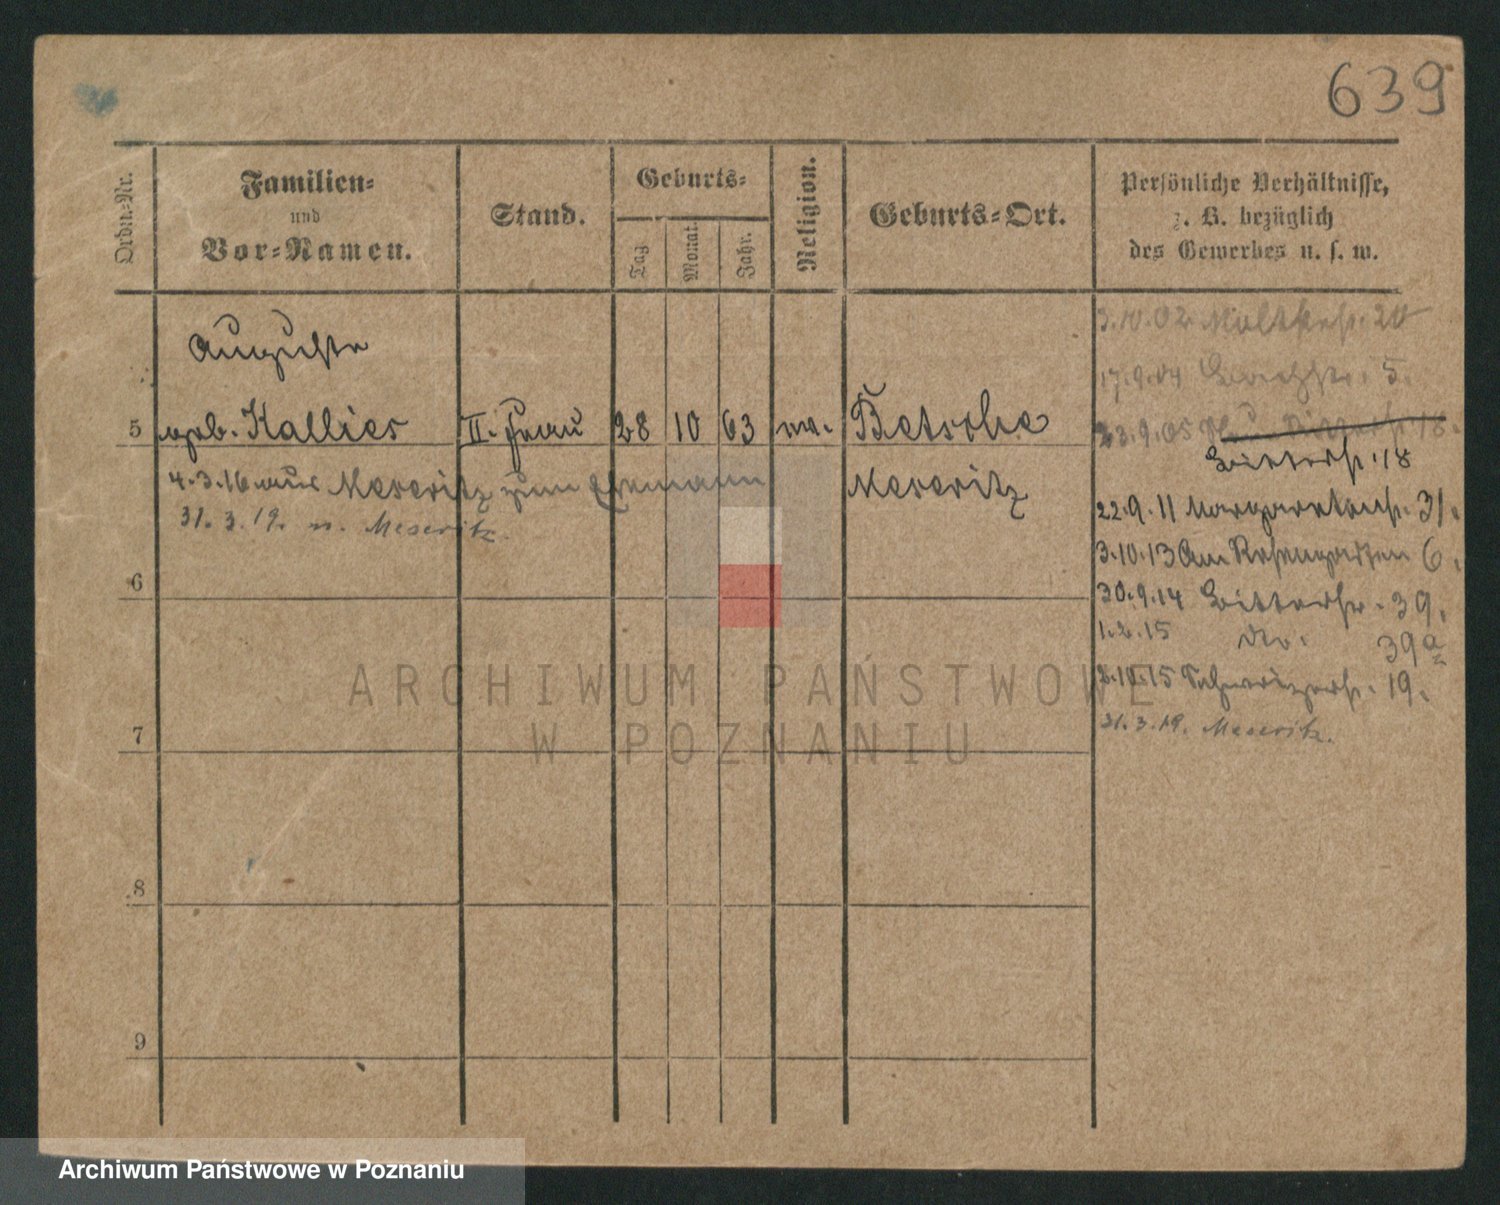 639
Ordn.-Nr.
Familien-
und
Vor-Namen.
Stand.
Geburts-
Tag
Monat.
Jahr.
Religion.
Geburts-Ort.
Persönliche Verhältnisse,
z. B. bezüglich
des Gewerbes u. s. w.
Auguste
5 geb. Kallies II. Frau 28 10 63 Betsche
4.3.16 aus Meseritz zum Ehemann Meseritz
31.3.19. n. Meseritz.
6
7
8
9
3.10.02 Moltkestr. 20
17.9.04 5.
23.9.05 18.
Bitterstr. 18
22.9.11 Margaretenstr. 31.
3.10.13 Am Rosengarten 6.
30.9.14 Bitterstr. 39.
1.2.15 do. 39a
2.10.15 Schwerinerstr. 19.
31.3.19. Meseritz.
ARCHIWUM PAŃSTWOWE
W POZNANIU
Archiwum Państwowe w Poznaniu